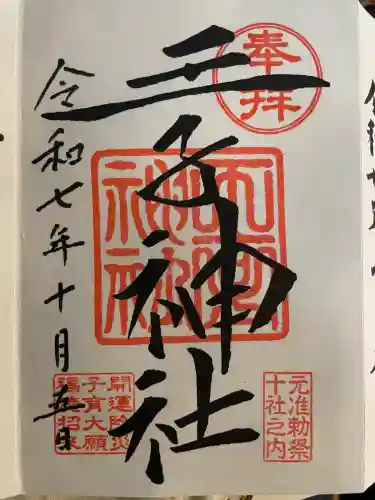 奉拝
王子神社
令和七年十月五日
元准勅祭
十社之内
開運除災
子育大願